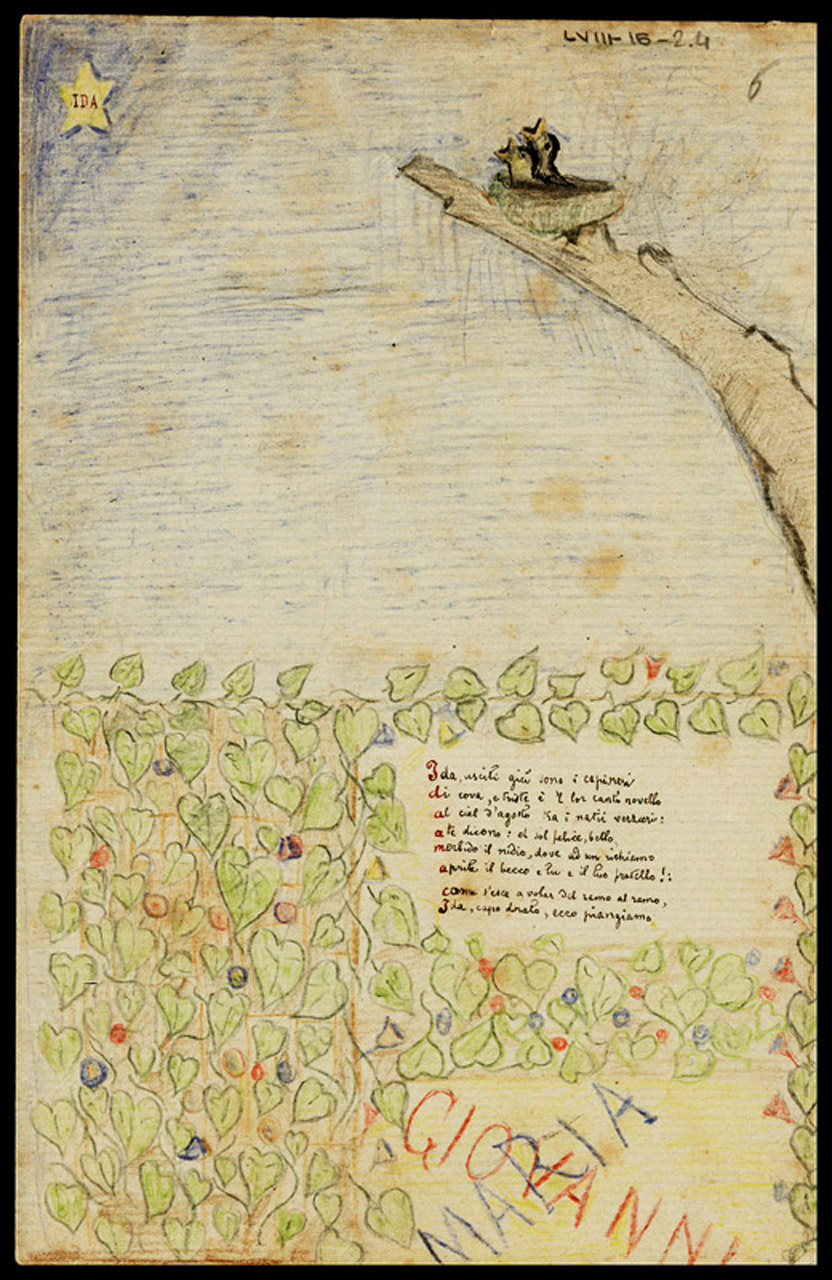 LVIII-16-2.4
6
IDA
Ida, usciti già sono i capineri
di cova, e triste è l lor canto novello
al ciel d'agosto tra i nativi verzieri:
a te dicono: el sol felice, bello,
morbido il nidio, dove ad un richiamo
aprite il becco e tu e il tuo fratello!:
come s'esce a volar del ramo al ramo,
Ida, capo dorato, ecco piangiamo
GIOVANNI
MARIA